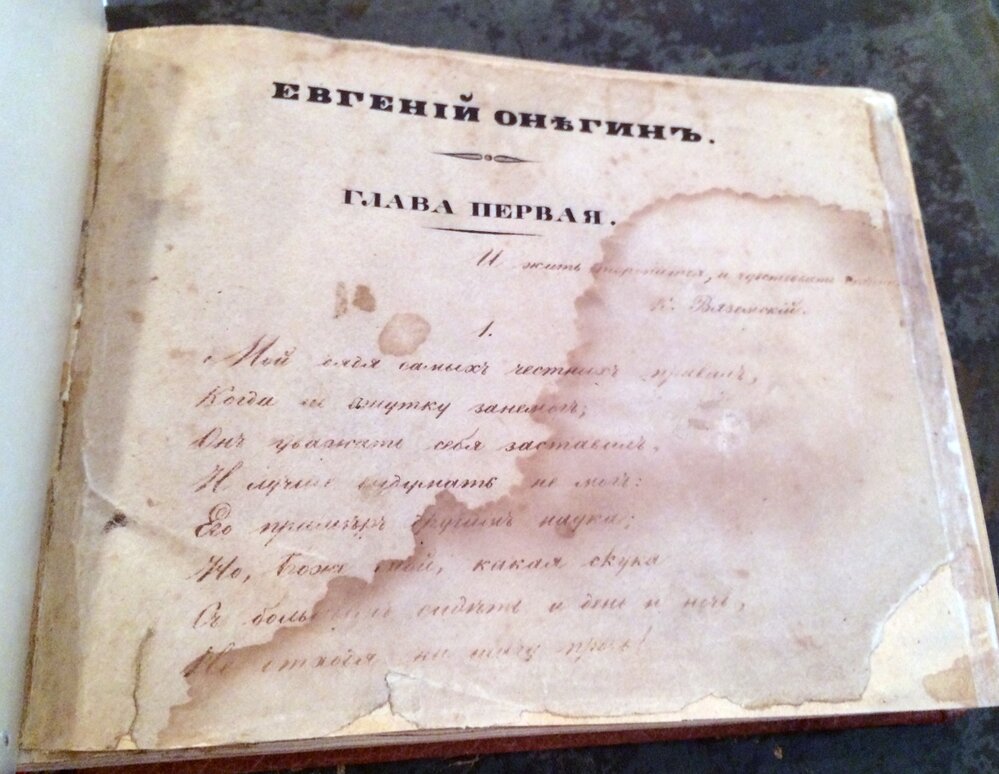 ЕВГЕНІЙ ОНѢГИНЪ.
ГЛАВА ПЕРВАЯ.
И жить торопится, и чувствовать
К. Вяземскій.
1.
Мой дядя самыхъ честныхъ правилъ,
Когда не вшутку занемогъ,
Онъ уважать себя заставилъ,
И лучше выдумать не могъ:
Его примѣръ другимъ наука;
Но, Боже мой, какая скука
Съ больнымъ сидѣть и день и ночь,
Не отходя ни шагу прочь!